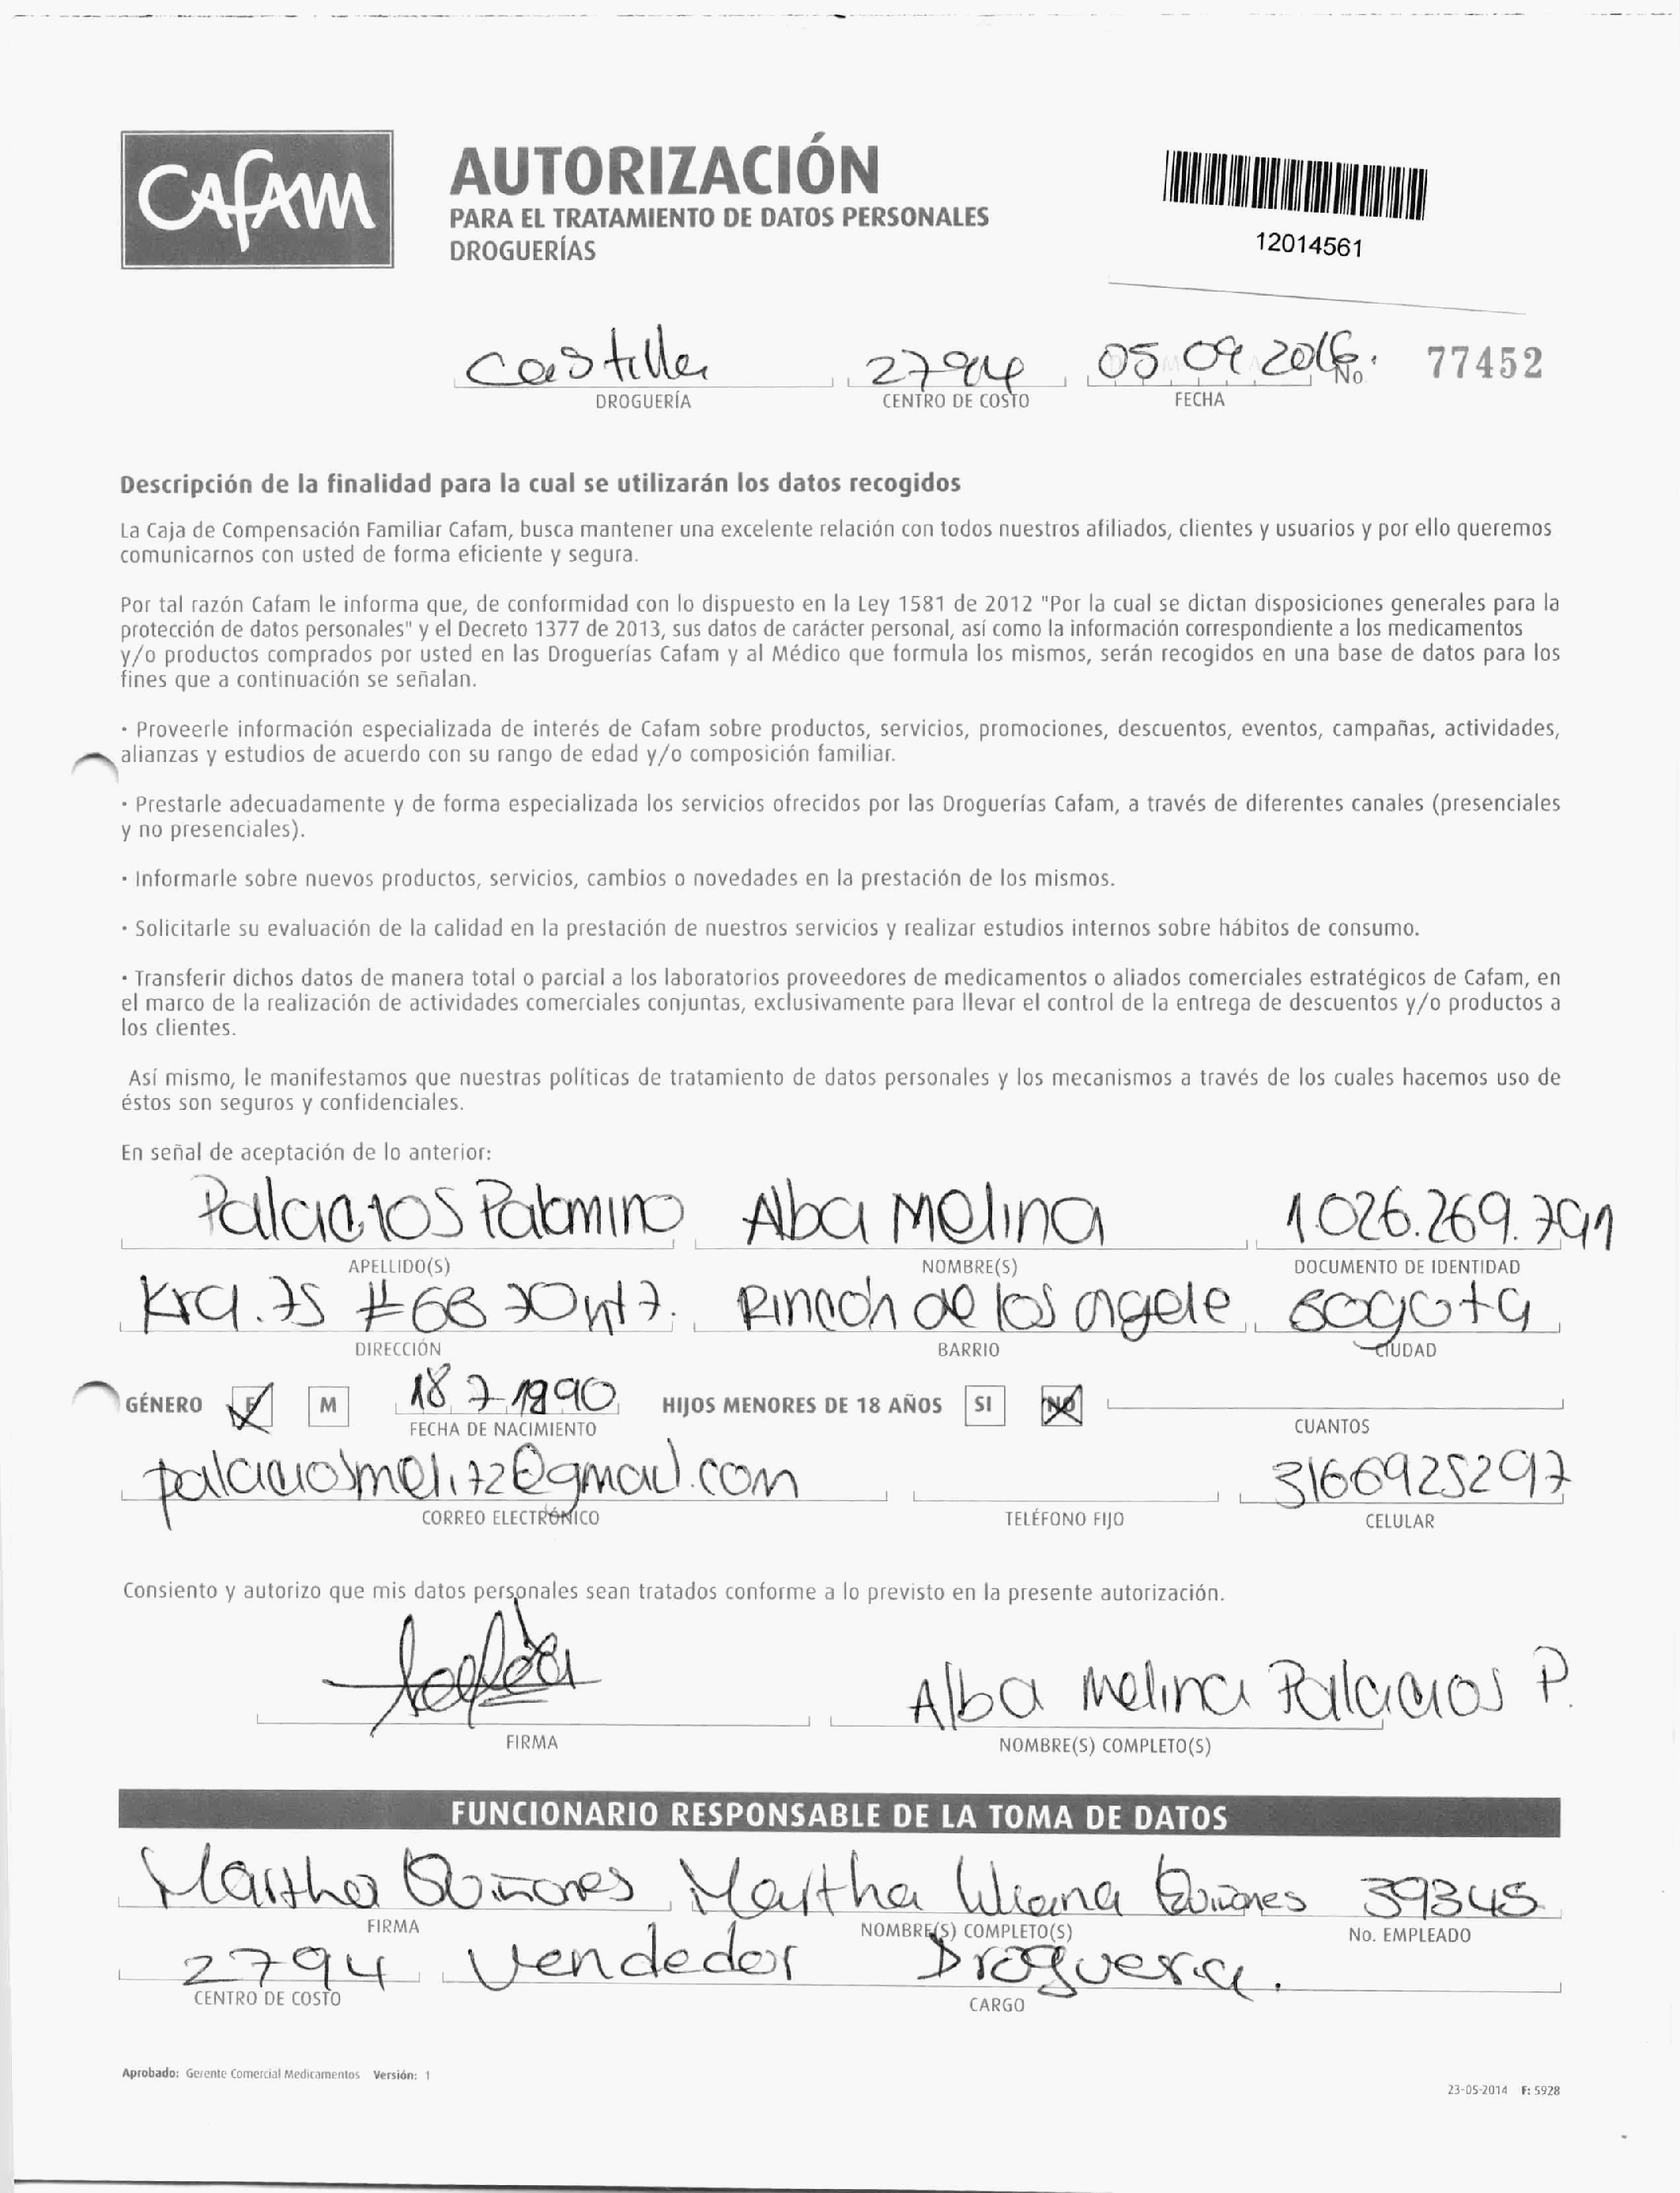 CAFAM
AUTORIZACIÓN
PARA EL TRATAMIENTO DE DATOS PERSONALES
DROGUERÍAS
12014561
Castilla 2794 05 09 2016. No. 77452
DROGUERÍA CENTRO DE COSTO FECHA
Descripción de la finalidad para la cual se utilizarán los datos recogidos
La Caja de Compensación Familiar Cafam, busca mantener una excelente relación con todos nuestros afiliados, clientes y usuarios y por ello queremos
comunicarnos con usted de forma eficiente y segura.
Por tal razón Cafam le informa que, de conformidad con lo dispuesto en la Ley 1581 de 2012 "Por la cual se dictan disposiciones generales para la
protección de datos personales" y el Decreto 1377 de 2013, sus datos de carácter personal, así como la información correspondiente a los medicamentos
y/o productos comprados por usted en las Droguerías Cafam y al Médico que formula los mismos, serán recogidos en una base de datos para los
fines que a continuación se señalan.
· Proveerle información especializada de interés de Cafam sobre productos, servicios, promociones, descuentos, eventos, campañas, actividades,
alianzas y estudios de acuerdo con su rango de edad y/o composición familiar.
· Prestarle adecuadamente y de forma especializada los servicios ofrecidos por las Droguerías Cafam, a través de diferentes canales (presenciales
y no presenciales).
· Informarle sobre nuevos productos, servicios, cambios o novedades en la prestación de los mismos.
· Solicitarle su evaluación de la calidad en la prestación de nuestros servicios y realizar estudios internos sobre hábitos de consumo.
· Transferir dichos datos de manera total o parcial a los laboratorios proveedores de medicamentos o aliados comerciales estratégicos de Cafam, en
el marco de la realización de actividades comerciales conjuntas, exclusivamente para llevar el control de la entrega de descuentos y/o productos a
los clientes.
Así mismo, le manifestamos que nuestras políticas de tratamiento de datos personales y los mecanismos a través de los cuales hacemos uso de
éstos son seguros y confidenciales.
En señal de aceptación de lo anterior:
Palacios Palomino Alba Melina 1.026.269.791
APELLIDO(S) NOMBRE(S) DOCUMENTO DE IDENTIDAD
Kra. 75 #6B 70 int 7. Rincon de los angele Bogota
DIRECCIÓN BARRIO CIUDAD
GÉNERO F M 18 7 1990 HIJOS MENORES DE 18 AÑOS SI NO
FECHA DE NACIMIENTO CUANTOS
palaciosmeli72@gmail.com 3166925297
CORREO ELECTRÓNICO TELÉFONO FIJO CELULAR
Consiento y autorizo que mis datos personales sean tratados conforme a lo previsto en la presente autorización.
Alba Melina Palacios P.
FIRMA NOMBRE(S) COMPLETO(S)
FUNCIONARIO RESPONSABLE DE LA TOMA DE DATOS
Martha Quiñones Martha Liliana Quiñones 39345
FIRMA NOMBRE(S) COMPLETO(S) No. EMPLEADO
2794 Vendedor Drogueria.
CENTRO DE COSTO CARGO
Aprobado: Gerente Comercial Medicamentos Versión: 1
23-05-2014 F: 5928